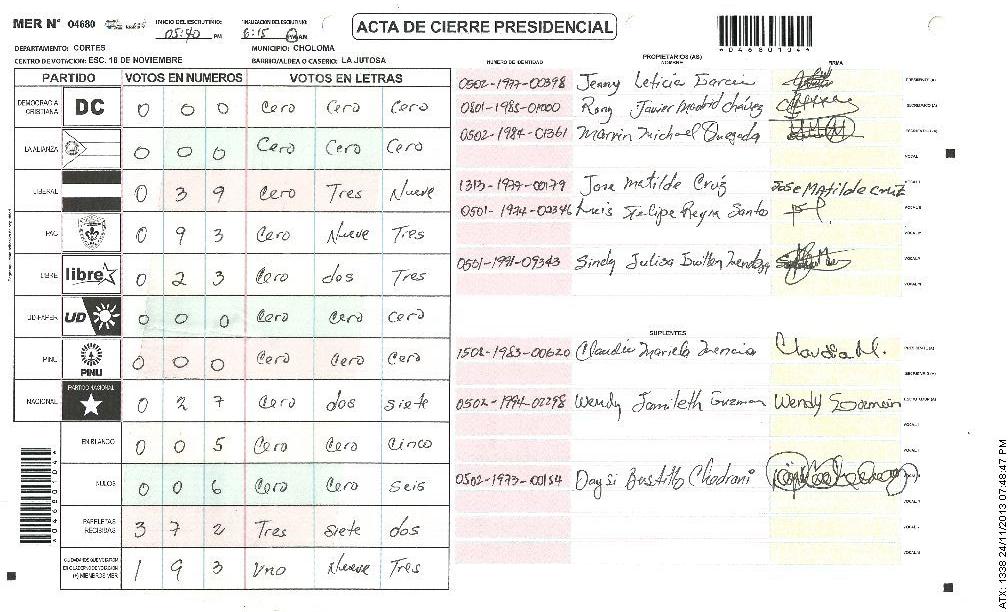 MER N° 04680
INICIO DEL ESCRUTINIO: 05:40 PM
FINALIZACION DEL ESCRUTINIO: 6:15 PM AM
ACTA DE CIERRE PRESIDENCIAL
A04680104
DEPARTAMENTO: CORTES
MUNICIPIO: CHOLOMA
CENTRO DE VOTACION: ESC. 18 DE NOVIEMBRE
BARRIO/ALDEA O CASERIO: LA JUTOSA
PARTIDO VOTOS EN NUMEROS VOTOS EN LETRAS
DEMOCRACIA CRISTIANA DC 0 0 0 Cero Cero Cero
LA ALIANZA 0 0 0 Cero Cero Cero
LIBERAL 0 3 9 Cero Tres Nueve
PAC 0 9 3 Cero Nueve Tres
LIBRE libre 0 2 3 Cero dos Tres
UD-FAPER UD 0 0 0 Cero Cero Cero
PINU PINU 0 0 0 Cero Cero Cero
NACIONAL PARTIDO NACIONAL 0 2 7 Cero dos siete
EN BLANCO 0 0 5 Cero Cero Cinco
NULOS 0 0 6 Cero Cero seis
PAPELETAS RECIBIDAS 3 7 2 Tres siete dos
CIUDADANOS QUE VOTARON EN CUADERNO DE VOTACION (+) MIEMBROS MER 1 9 3 Uno Nueve Tres
A04680104
NUMERO DE IDENTIDAD
PROPIETARIOS (AS)
NOMBRE
FIRMA
0502-1977-00398 Jenny Leticia Garcia PRESIDENTE (A)
0801-1985-01000 Rony Javier Madrid Chavez SECRETARIO (A)
0502-1984-01361 Marvin Michael Quezada
VOCAL
1313-1979-00179 Jose Matilde Cruz Jose Matilde Cruz
0501-1974-02346 Luis Felipe Reyna Santo
0501-1991-09343 Sindy Julisa
SUPLENTES
1502-1983-00620 Claudia Mariela Mencia Claudia M. PRESIDENTE (A)
SECRETARIO (A)
0502-1994-02298 Wendy Jamileth Guzman Wendy Guzman
0502-1973-00154 Daysi Bustillo Chadrani
ATX: 1338 24/11/2013 07:48:47 PM